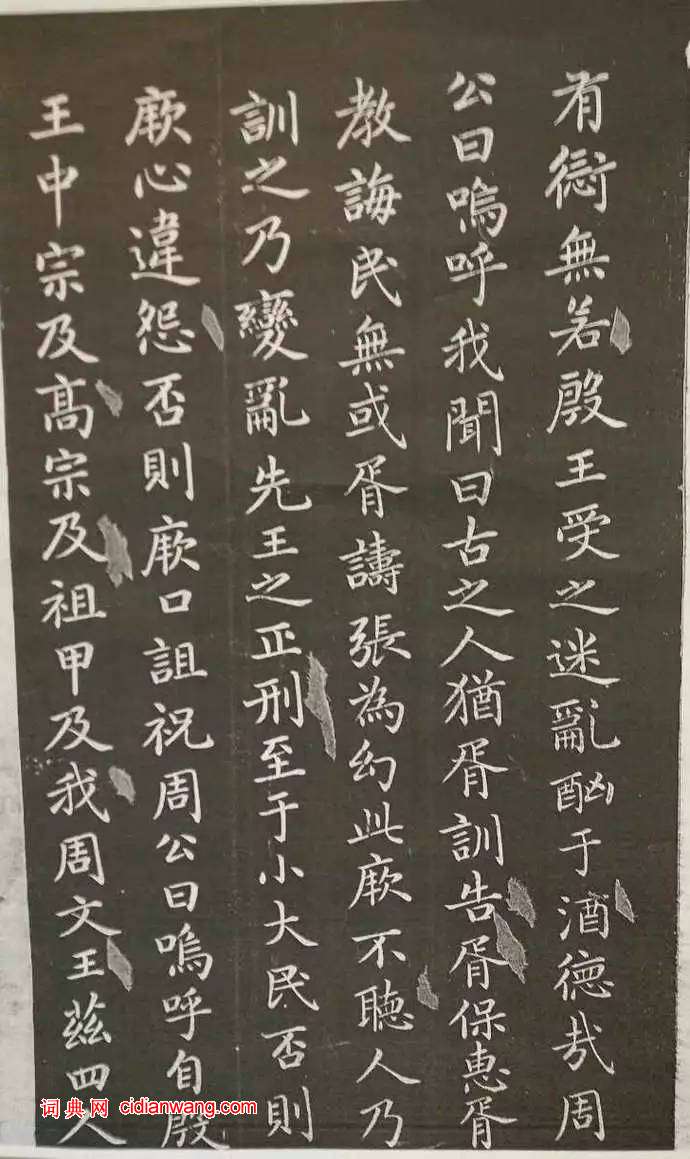 有愆無若殷王受之迷亂酗于酒德哉周
公曰嗚呼我聞曰古之人猶胥訓告胥保惠胥
教誨民無或胥譸張為幻此厥不聽人乃
訓之乃變亂先王之正刑至于小大民否則
厥心違怨否則厥口詛祝周公曰嗚呼自殷
王中宗及髙宗及祖甲及我周文王茲四人
词典网 cidianwang.com